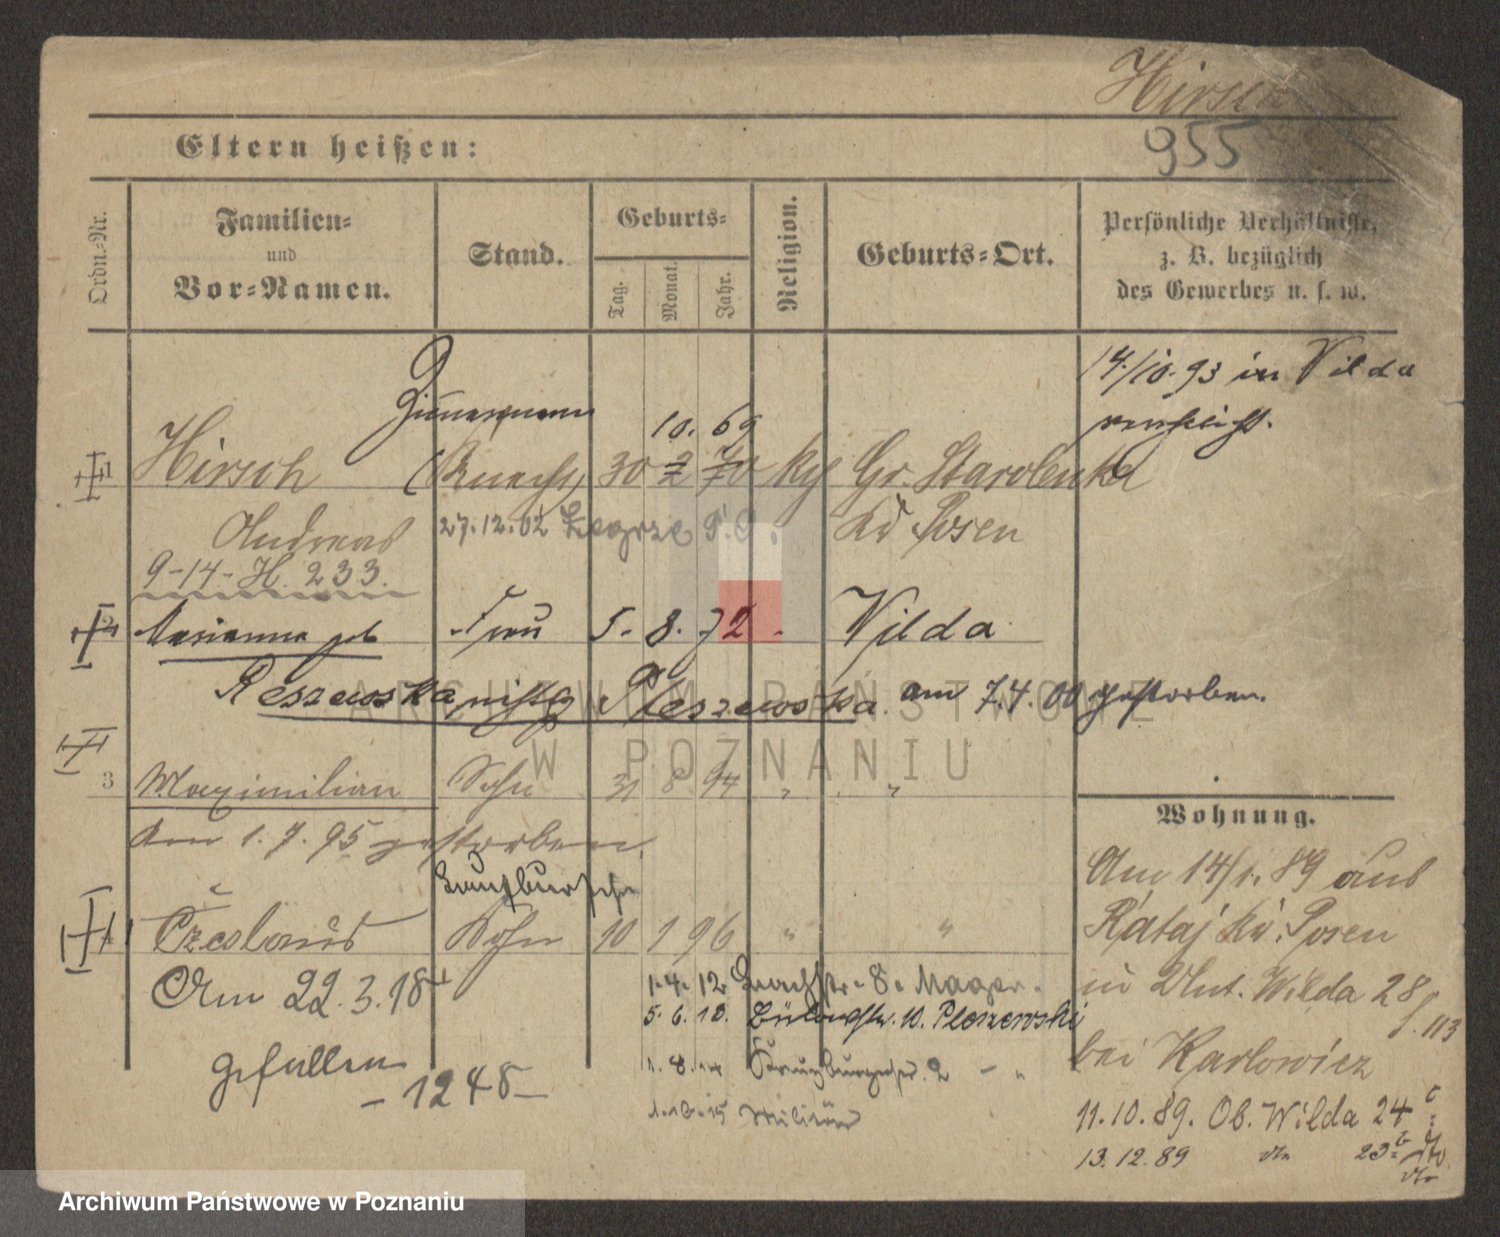 Hirsch
955
Eltern heißen:
Ordn.-Nr.
Familien-
und
Vor-Namen.
Stand.
Geburts-
Tag.
Monat.
Jahr.
Religion.
Geburts-Ort.
Persönliche Verhältnisse,
z. B. bezüglich
des Gewerbes u. s. w.
14./10.93 in Wilda
verehelicht.
10. 69
1 Hirsch (Knecht) 30 2 70 kth Gr. Starolenka
Andreas 27.12.02 Zegrze P.O. Kr Posen
9-14- H. 233.
2 Marianna geb Frau 5. 8. 72 Wilda
Reszewska richtig Pleszewska am 7.4.00 gestorben.
3 Maximilian Sohn 31 8 94 " "
Am 1.7.95 gestorben
Laufbursche
Czeslaus Sohn 10 1 96 " "
Am 22.3.18
gefallen
- 1248 -
1.4.12 8. Mager.
5.6.12. Bülowstr. 10. Pleszewski
1.8.14 Kreuzburgerstr. 2 - "
Militär
Wohnung.
Am 14/1.89 aus
Rataj Kr. Posen
in Unt. Wilda 28
f. 113
bei Karlowicz
11.10.89. Ob. Wilda 24
13.12.89 do 23
ARCHIWUM PAŃSTWOWE
W POZNANIU
Archiwum Państwowe w Poznaniu